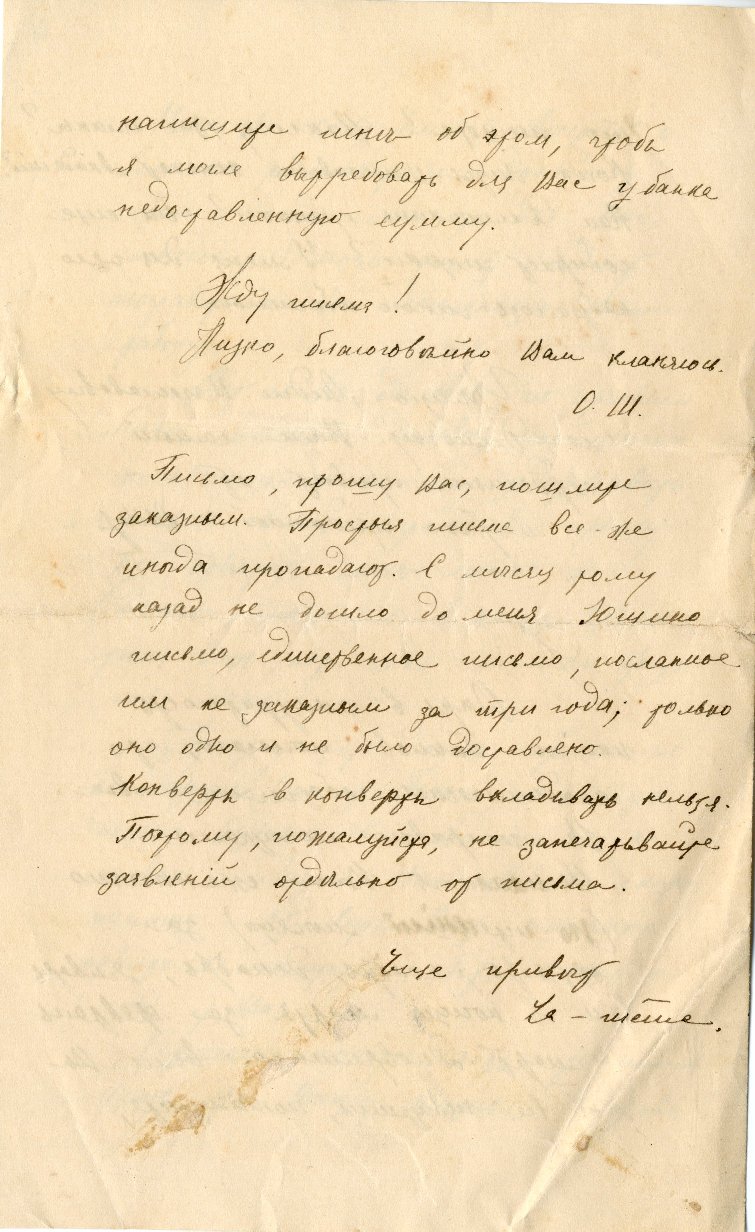 напишите мнѣ об этом, чтобы
я могла вытребовать для Вас у банка
недоставленную сумму.
Жду письма!
Низко, благоговѣйно Вам кланяюсь.
О. Ш.
Письмо, прошу Вас, пошлите
заказным. Простыя письма все-же
иногда пропадают. С мѣсяц тому
назад не дошло до меня Юшино
письмо, единственное письмо, посланное
им не заказным за три года; только
оно одно и не было доставлено.
Конверты в конверты вкладывать нельзя.
Поэтому, пожалуйста, не запечатывайте
заявленій отдѣльно от письма.
Еще привѣт